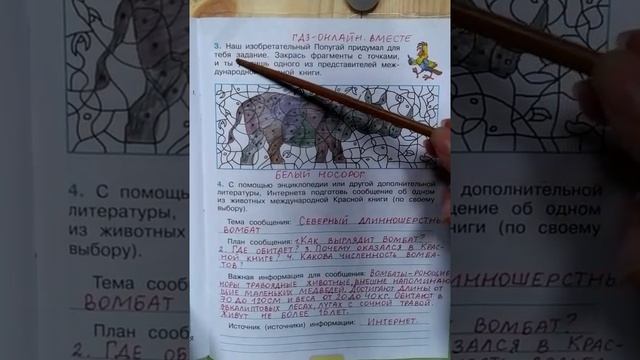 ГДЗ-ОНЛАЙН. ВМЕСТЕ
3. Наш изобретательный Попугай придумал для
тебя задание. Закрась фрагменты с точками,
и ты одного из представителей меж-
дународной книги.
БЕЛЫЙ НОСОРОГ
4. С помощью энциклопедии или другой дополнительной
литературы, Интернета подготовь сообщение об одном
из животных международной Красной книги (по своему
выбору).
Тема сообщения: СЕВЕРНЫЙ ДЛИННОШЕРСТН
ВОМБАТ
План сообщения: 1. КАК ВЫГЛЯДИТ ВОМБАТ?
2. ГДЕ ОБИТАЕТ? 3. ПОЧЕМУ ОКАЗАЛСЯ В КРАС-
НОЙ КНИГЕ? 4. КАКОВА ЧИСЛЕННОСТЬ ВОМБА-
ТОВ?
Важная информация для сообщения: ВОМБАТЫ-РОЮЩИЕ
НОРЫ ТРАВОЯДНЫЕ ЖИВОТНЫЕ, ВНЕШНЕ НАПОМИНАЮ
ЩИЕ МАЛЕНЬКИХ МЕДВЕДЕЙ. ДОСТИГАЮТ ДЛИНЫ ОТ
70 ДО 120СМ И ВЕСА ОТ 20 ДО 40 КГ. ОБИТАЮТ В
ЭВКАЛИПТОВЫХ ЛЕСАХ, ЛУГАХ С СОЧНОЙ ТРАВОЙ.
ЖИВУТ НЕ БОЛЕЕ ЛЕТ.
Источник (источники) информации: ИНТЕРНЕТ.
4. С помощ
литературы,
из животных
выбору).
Тема сооб
ВОМБАТ
План сооб
2. ГДЕ ОБ
дополнительной
щение об одном
ги (по своему
ННОШЕРСТН
ВОМБАТ?
АЗАЛСЯ В КРАС